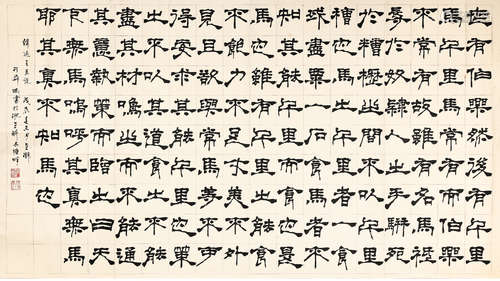 世有伯樂然後有千里
馬千里馬常有而伯樂
不常有故雖有名馬祇
辱於奴隸人之手駢死
於槽櫪之間不以千里
稱也馬之千里者一食
或盡粟一石食馬者不
知其能千里而食也是
馬也雖有千里之能食
不飽力不足才美不外
見且欲與常馬等不可
得安求其能千里也策
之不以其道食之不能
盡其材鳴之而不能通
其意執策而臨之曰天
下無馬嗚呼其真無馬
耶其真不知馬也